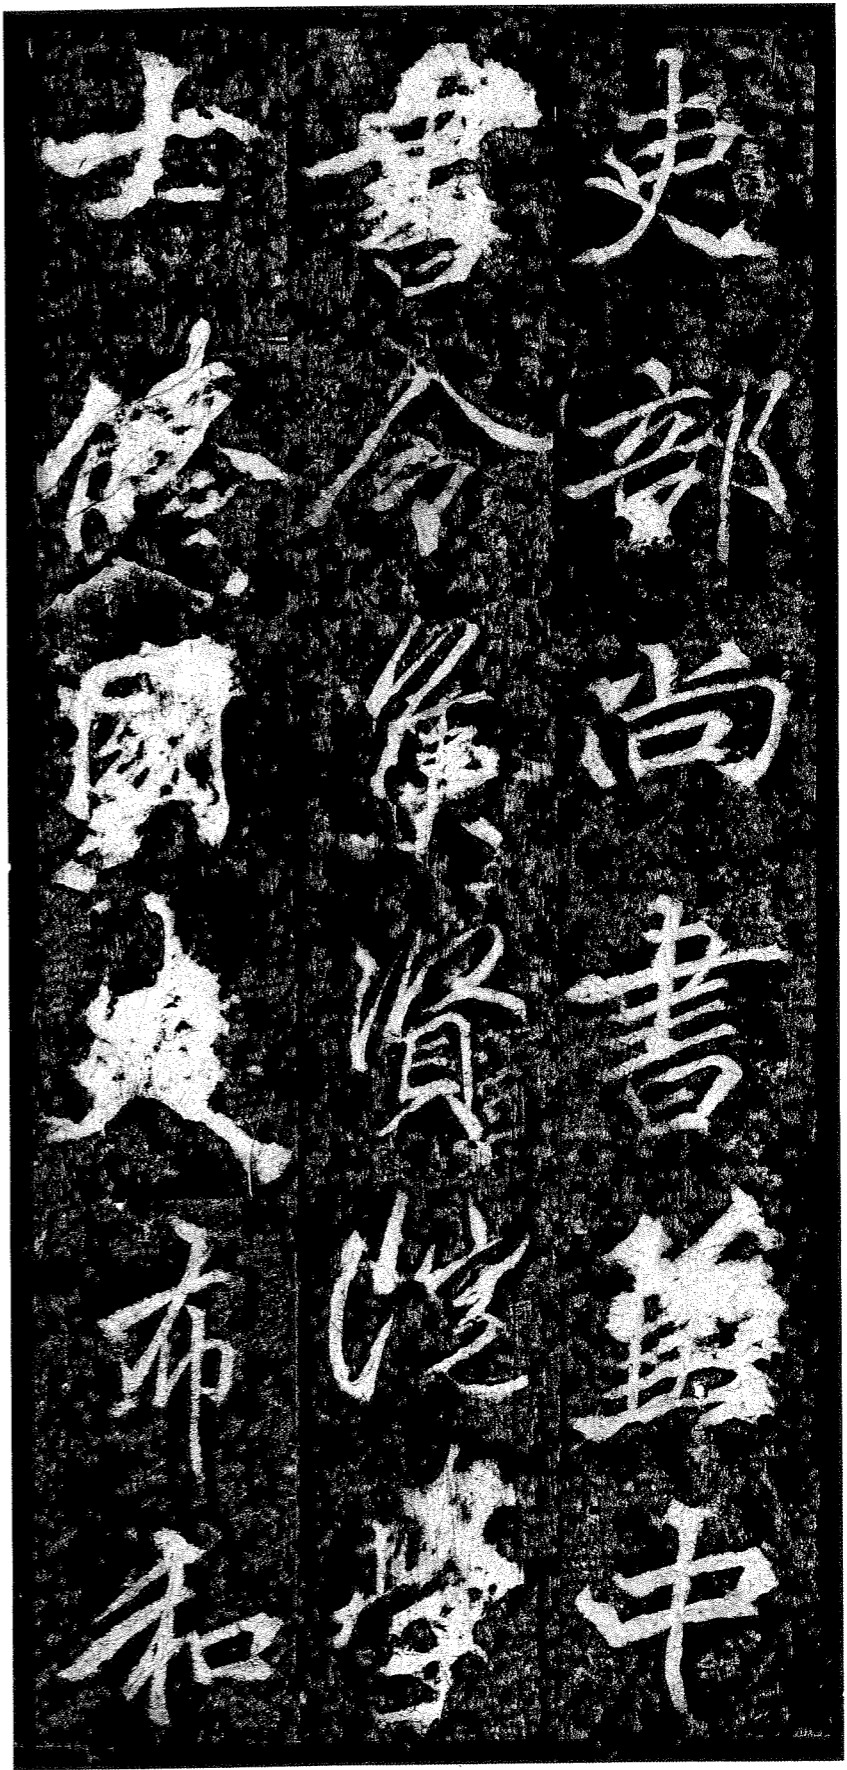 吏部尚書兼中
書令集賢院學
士脩國史布和